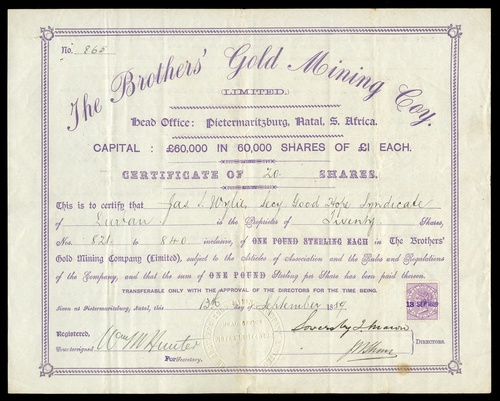 No. 865
The Brothers' Gold Mining Coy.
(LIMITED.)
Head Office: Pietermaritzburg, Natal, S. Africa.
CAPITAL: £60,000 IN 60,000 SHARES OF £1 EACH.
CERTIFICATE OF 20 SHARES.
This is to certify that Jas S Wylie, Secy Good Hope Syndicate
of is the Proprietor of Twenty Shares,
Nos. 821 to 840 inclusive, of ONE POUND STERLING EACH in The Brothers'
Gold Mining Company (Limited), subject to the Articles of Association and the Rules and Regulations
of the Company, and that the sum of ONE POUND Sterling per Share has been paid thereon.
TRANSFERABLE ONLY WITH THE APPROVAL OF THE DIRECTORS FOR THE TIME BEING.
Given at Pietermaritzburg, Natal, this 13th day of September 1889
13 SEP 1889
Registered,
Countersigned Wm M Hunter
For Secretary.
DIRECTORS.